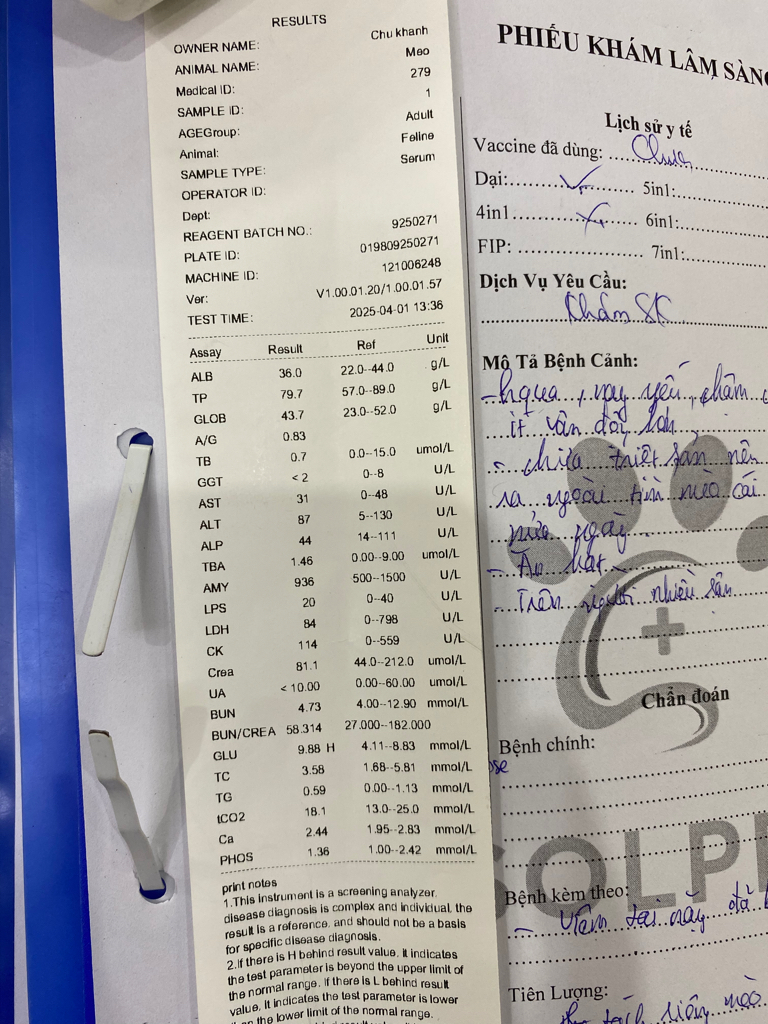 RESULTS
OWNER NAME: Chu khanh
ANIMAL NAME: Meo
Medical ID: 279
SAMPLE ID: 1
AGEGroup: Adult
Animal: Feline
SAMPLE TYPE: Serum
OPERATOR ID:
Dept:
REAGENT BATCH NO.: 9250271
PLATE ID: 019809250271
MACHINE ID: 121006248
Ver: V1.00.01.20/1.00.01.57
TEST TIME: 2025-04-01 13:36
Assay Result Ref Unit
ALB 36.0 22.0--44.0 g/L
TP 79.7 57.0--89.0 g/L
GLOB 43.7 23.0--52.0 g/L
A/G 0.83
TB 0.7 0.0--15.0 umol/L
GGT < 2 0--8 U/L
AST 31 0--48 U/L
ALT 87 5--130 U/L
ALP 44 14--111 U/L
TBA 1.46 0.00--9.00 umol/L
AMY 936 500--1500 U/L
LPS 20 0--40 U/L
LDH 84 0--798 U/L
CK 114 0--559 U/L
Crea 81.1 44.0--212.0 umol/L
UA < 10.00 0.00--60.00 umol/L
BUN 4.73 4.00--12.90 mmol/L
BUN/CREA 58.314 27.000--182.000
GLU 9.88 H 4.11--8.83 mmol/L
TC 3.58 1.68--5.81 mmol/L
TG 0.59 0.00--1.13 mmol/L
tCO2 18.1 13.0--25.0 mmol/L
Ca 2.44 1.95--2.83 mmol/L
PHOS 1.36 1.00--2.42 mmol/L
print notes
1.This instrument is a screening analyzer,
disease diagnosis is complex and individual, the
result is a reference, and should not be a basis
for specific disease diagnosis.
2.If there is H behind result value, it indicates
the test parameter is beyond the upper limit of
the normal range. If there is L behind result
value, it indicates the test parameter is lower
than the lower limit of the normal range.
PHIẾU KHÁM LÂM SÀNG
Lịch sử y tế
Vaccine đã dùng: Chưa
Dại: 5in1:
4in1 6in1:
FIP: 7in1:
Dịch Vụ Yêu Cầu:
Khám SK
Mô Tả Bệnh Cảnh:
- hqua, nay yếu, chậm
ít vận động hơn
- chưa triệt sản nên
ra ngoài tìm mèo cái
nửa ngày
- Ăn hạt
- Trên người nhiều sần
Chẩn đoán
Bệnh chính:
Bệnh kèm theo:
- Viêm tai nặng
Tiên Lượng: